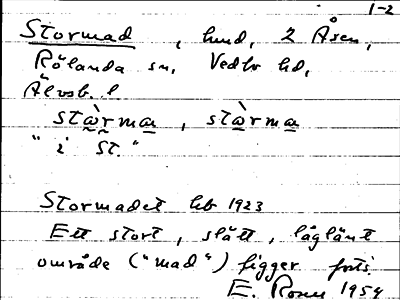 1-2
Stormad, hmd, 2 Åsen,
Rölanda sn, Vedbo hd,
Älvsb. l
stɑ̀rmɑ, stɑ̀rmɑ
"i St."
Stormadet hb 1923
Ett stort, slätt, låglänt
område ("mad") ligger forts.
E. Rosen 1954